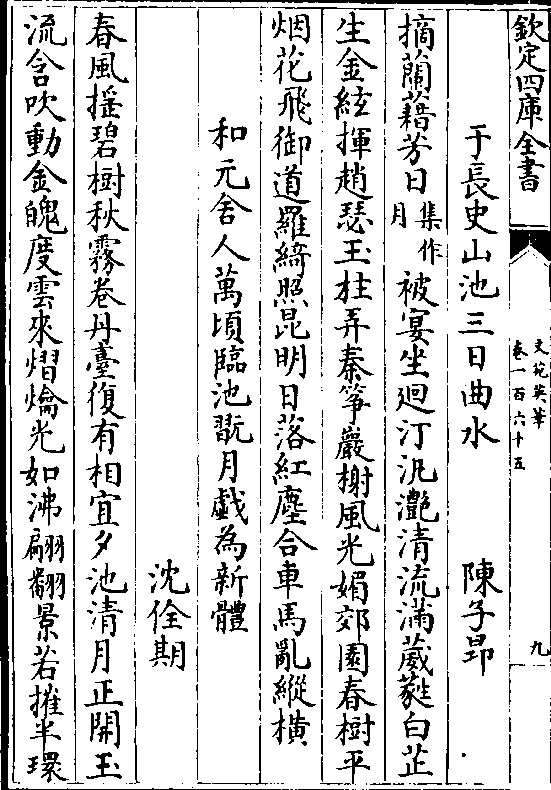 欽定四庫全書
文苑英華
卷一百六十五
九
于長史山池三日曲水 陳子昻
摘蘭藉芳日集作月被宴坐廻汀汎灔清流滿葳蕤白芷
生金絃揮趙瑟玉柱弄秦筝巖榭風光媚郊園春樹平
烟花飛御道羅綺照昆明日落紅塵合車馬亂縱橫
和元舍人萬頃臨池翫月戲為新體
沈佺期
春風揺碧樹秋霧卷丹臺復有相宜夕池清月正開玉
流含吹動金魄度雲來熠爚光如沸翩翻景若摧半環